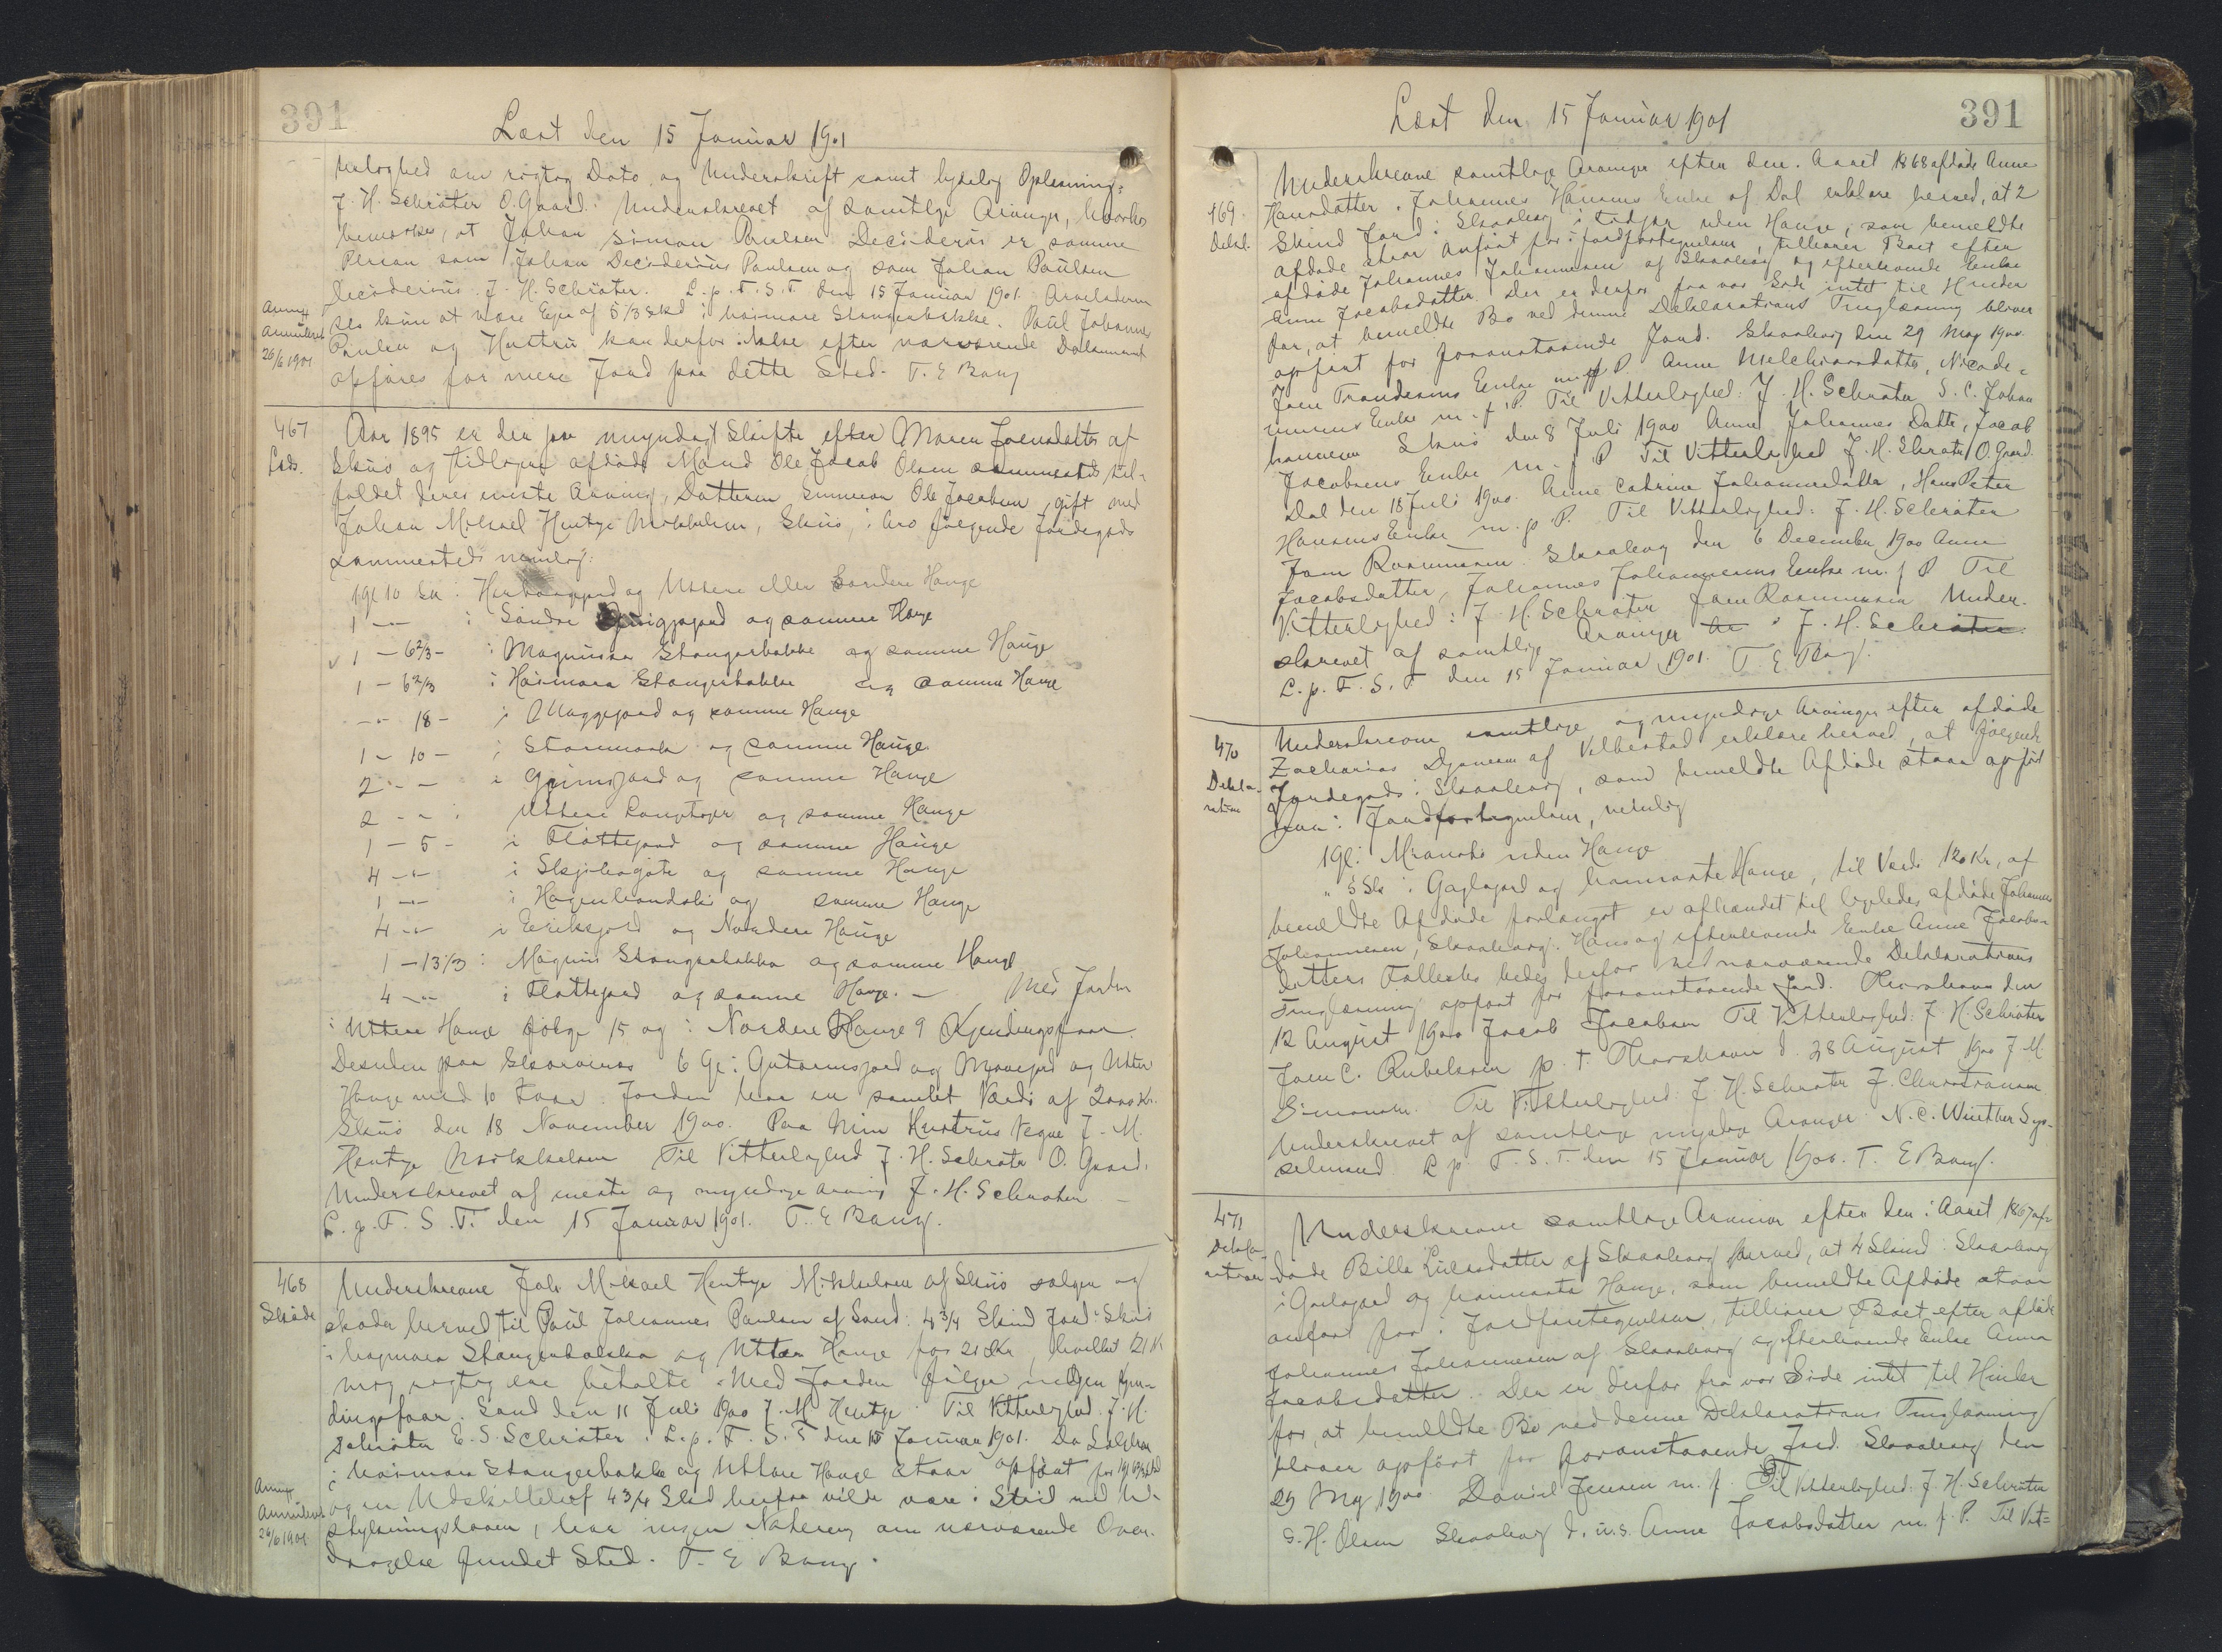 391
Læst den 15 Januar 1901
terlighed om rigtig Dato og Underskrift samt lydelig Oplæsning:
J. H. Schröter O. Gaard. Underskrevet af samtlige Arvinger, hvorhos
bemærkes, at Johan Simon Poulsen Deciderius er samme
Person som Johan Deciderius Paulsen og som Johan Paulsen
Deciderius. J. H. Schröter. L. p. F. S. T. den 15 Januar 1901. Arveladeren
ses kun at være Ejer af 5 1/3 Skd i Stangerbakke. Paul Johannes
Anmx
Annulleret
26/6 1901
Paulsen og Hustru kan derfor ikke efter nærværende Dokument
opføres for mere Jord paa dette Sted. T. E Bang
467
Aar 1895 er der paa myndigt Skifte efter Maren Joensdatter af
Skuö og tidligere afdøde Mand Ole Jacob Olsen sammesteds til-
faldet deres eneste Arving, Datteren Ole Jacobine, gift med
Johan Mikael Hentze Mikkelsen, Skuö, i Arv følgende Jordegods
sammesteds nemlig:
1 Gl 10 Sk i og Uttere eller Søndre Hauge
1 -- i Søndre og samme Hauge
1 - 6 2/3 - i Magnussa Stangerbakke og samme Hauge
1 - 6 2/3 i Stangerbakke og samme Hauge
-- 18 - i og samme Hauge
1 - 10 - i og samme Hauge
2 - - i Grimsjord og samme Hauge
2 - - i Uttere og samme Hauge
1 - 5 - i Flöttegaard og samme Hauge
4 - - i og samme Hauge
1 -- i og samme Hauge
4 -- i Eeriksjord og Nordere Hauge
1 - 13 1/3 i Magnus Stangerbakka og samme Hauge
4 -- i Flöttejord og samme Hauge. - Med Jorden
i Uttere Hauge følge 15 og i Nordere Hauge 9 Kjendingsfaar.
Desuden paa 6 Gl i Gutormsjord og og Uttere
Hauge med 10 Faar. Jorden har en samlet Værdi af 2000 Kr.
Skuö den 18 November 1900. Paa Min Hustrus Vegne J. M.
Hentze Mikkelsen Til Vitterlighed J. H. Schröter O. Gaard.
Underskrevet af eneste og myndige Arving J. H. Schröter -
L. p. F. S. T. den 15 Januar 1901. T. E Bang.
468
Skøde
Underskrevne Joh. Mikael Hentze Mikkelsen af Skuö sælger og
skøder herved til Paul Johannes Paulsen af Sand: 4 3/4 Skind Jord i Skuö
i Stangerbakka og Uttere Hauge for 21 Kr, hvilke 21 Kr
mig rigtig ere betalte. Med Jorden følger ingen Kjen-
dingsfaar. Sand den 11 Juli 1900 J. M Hentze. Til Vitterlighed J. H.
Schröter E. S. Schröter. L. p. F. S. T den 15 Januar 1901. Da Sælgeren
i Stangerbakke og Uttere Hauge staar opført for
Anmx
Annulleret
26/6 1901
og en Udskiftelse af 4 3/4 Skd herfra vilde være i Strid med Ud-
stykningsloven, har ingen Notering om nærværende Over-
dragelse fundet Sted. T. E Bang.
Læst den 15 Januar 1901
391
469
Dekl.
Underskrevne samtlige Arvinger efter den i Aaret 1868 afdøde Anne
Hansdatter, Johannes Hansens Enke af Dal erklære herved, at 2
Skind Jord i Skaalevig i uden Hauge, som bemeldte
afdøde staar anført for i Jordfortegnelsen, tilhører Boet efter
afdøde Johannes Johannesen af Skaalevig og efterlevende Enke
Anne Jacobsdatter. Der er derfor fra vor Side intet til Hinder
for, at bemeldte Bo ved denne Deklarations Tinglæsning bliver
opført for foranstaaende Jord. Skaalevig den 29 Maj 1900.
Joen Enke m f P. Anne Melchiorsdatter,
Enke m. f. P. Til Vitterlighed: J. H. Schröter S. C. Johan
nessen Skuö den 8 Juli 1900 Anne Johannes Datter, Jacob
Jacobsens Enke m. f. P Til Vitterlighed J. H. Schröter O. Gaard.
Dal den 18 Juli 1900 Anne Catrine Johannesdatter, Hans Peter
Hansens Enke m. f. P. Til Vitterlighed: J. H. Schröter
Joen Rasmussen. Skaalevig den 6 December 1900 Anne
Jacobsdatter, Johannes Johannesens Enke m. f P Til
Vitterlighed: J. H. Schröter Joen Rasmussen Under-
skrevet af samtlige Arvinger J. H. Schröter.
L. p. F. S. T den 15 Januar 1901. T. E Bang.
470
Dekla-
ration
Underskrevne samtlige og myndige Arvinger efter afdøde
Zacharias af Velbestad erklære herved, at følgende
Jordegods i Skaalevig, som bemeldte Afdøde staar opført
for i Jordfortegnelsen, nemlig
1 Gl i uden Hauge
" 5 Sk i og Hauge, til Værdi 120 Kr, af
bemeldte Afdøde forlængst er afhændet til ligeledes afdøde Johannes
Johannesen, Skaalevig. Hans og efterlevende Enke Anne Jacobs-
datters Fællesbo bedes derfor ved nærværende Deklarations
Tinglæsning opført for foranstaaende Jord. Thorshavn den
12 August 1900 Jacob Jacobsen Til Vitterlighed: J. H. Schröter
Joen C. p. t. Thorshavn d. 28 August 1900 J. M
Simonsen. Til Vitterlighed J. H. Schröter J. Christiansen.
Underskrevet af samtlige myndige Arvinger N. C. Winther Sys-
selmand L. p. F. S. T. den 15 Januar 1900. T. E Bang.
471
Dekla-
ration
Underskrevne samtlige Arvinger efter den i Aaret 1867 af-
døde Bille af Skaalevig herved, at 4 Skind i Skaalevig
i og Hauge, som bemeldte Afdøde staar
anført for i Jordfortegnelsen, tilhører Boet efter afdøde
Johannes Johannesen af Skaalevig og efterlevende Enke Anna
Jacobsdatter. Der er derfor fra vor Side intet til Hinder
for, at bemeldte Bo ved denne Deklarations Tinglæsning
bliver opført for foranstaaende Jord. Skaalevig den
29 Maj 1900. Daniel Jensen m. f. Til Vitterlighed: J. H. Schröter
S. H. Olsen Skaalevig d. u. s. Anne Jacobsdatter m. f. P. Til Vit=